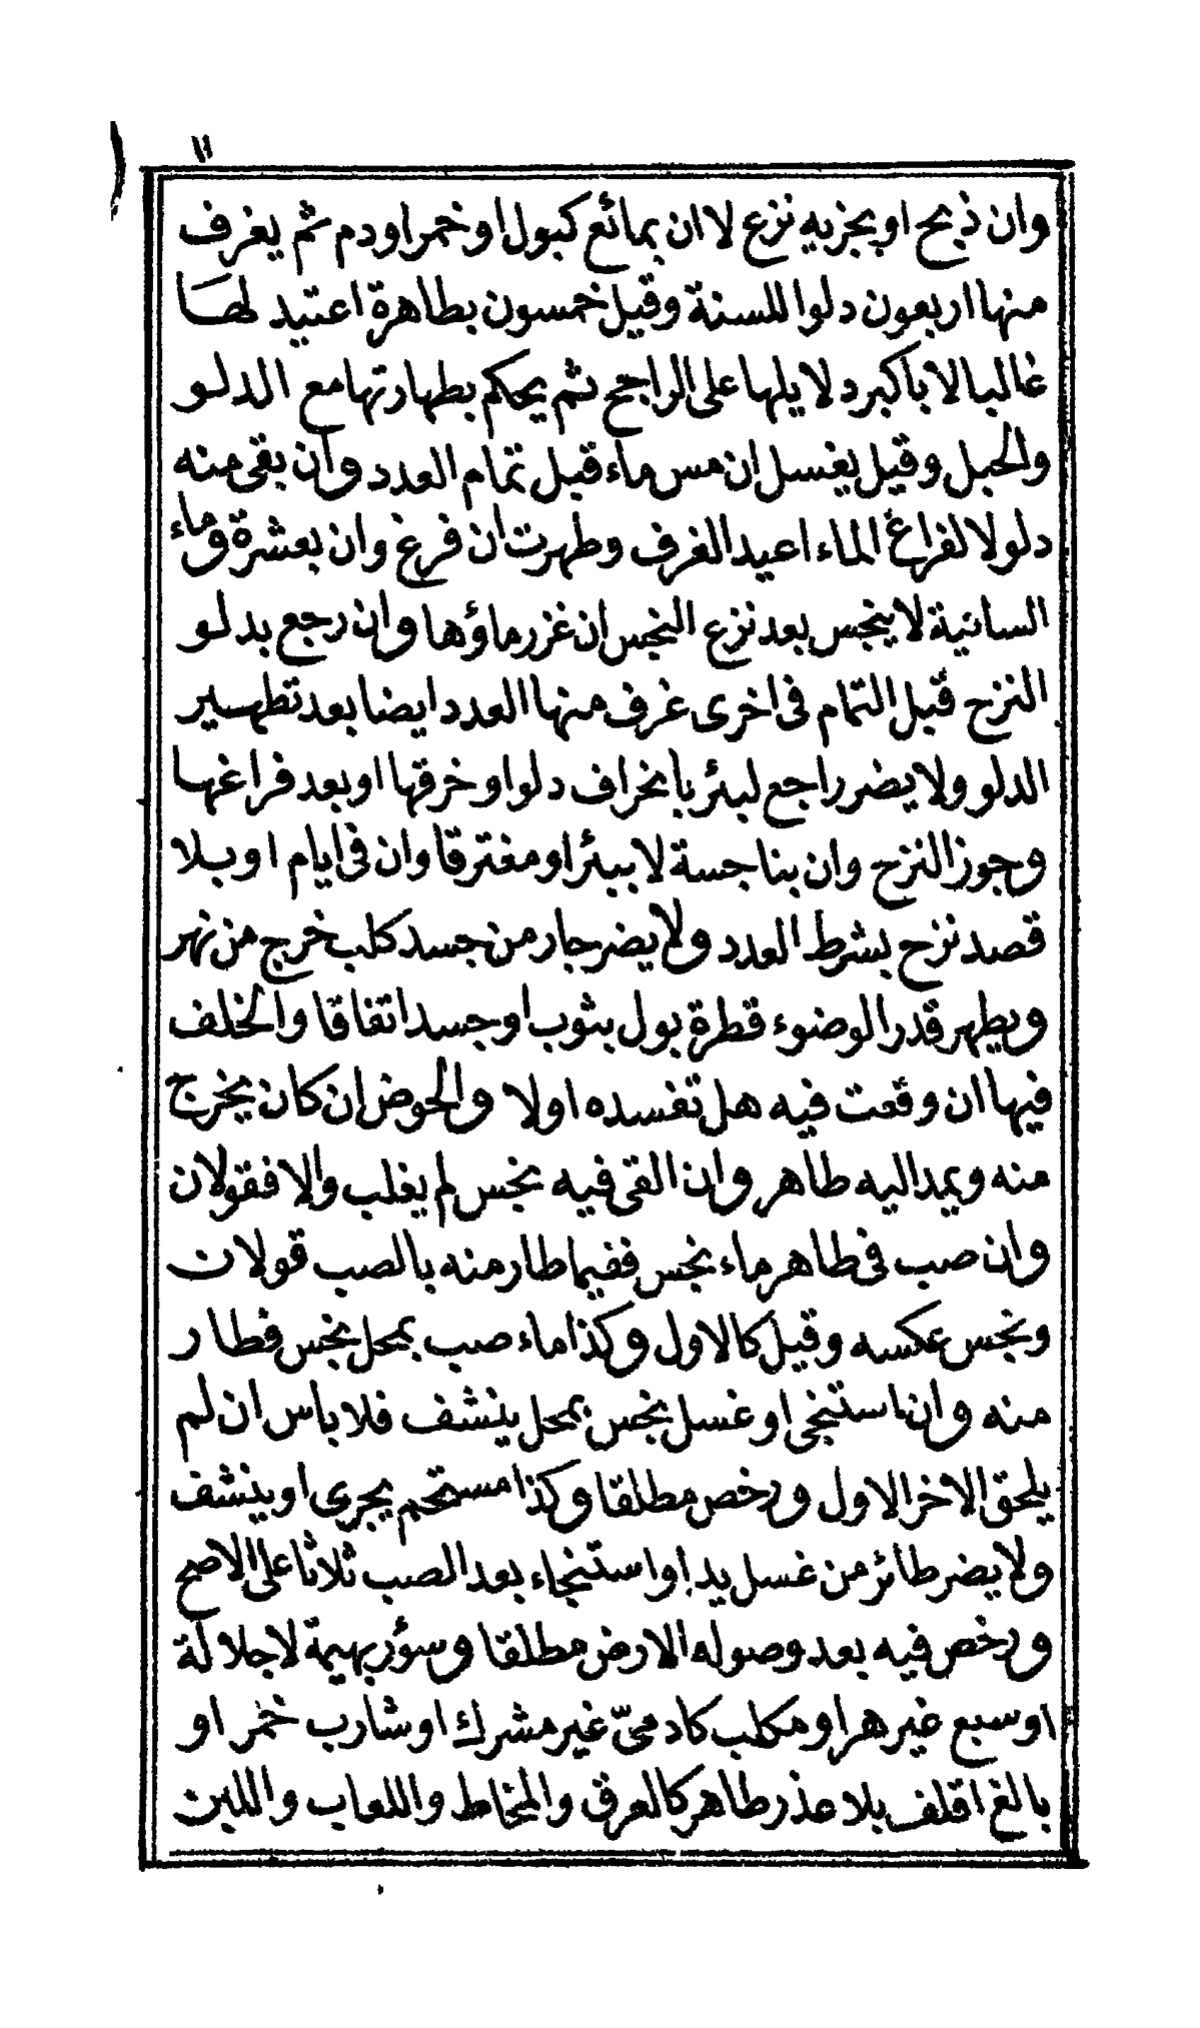 ١١
وان ذبح او بجزيه نزع لا ان بمائع كبول او خمر او دم ثم يغرف
منها اربعون دلوا للسنة وقيل خمسون بطاهرة اعتيد لها
غالبا لا باكبر دلا يلها على الراجح ثم يحكم بطهارتها مع الدلو
والحبل وقيل يغسل ان مس ماء قبل تمام العدد وان بقى منه
دلو لا لفراغ الماء اعيد الغرف وطهرت ان فرغ وان بعشرة وماء
السانية لا ينجس بعد نزع النجس ان غزر ماؤها وان رجع بدلو
النزح قبل التمام فى اخرى غرف منها العدد ايضا بعد تطهير
الدلو ولا يضر راجع لبئر بانخراف دلو او خرقها او بعد فراغها
وجوز النزح وان بناجسة لا ببئر او مفترقا وان فى ايام او بلا
قصد نزح بشرط العدد ولا يضر جار من جسد كلب خرج من نهر
ويطهر قدر الوضوء قطرة بول بثوب او جسد اتفاقا والخلف
فيها ان وقعت فيه هل تفسده اولا والحوض ان كان يخرج
منه ويمد اليه طاهر وان القى فيه نجس لم يغلب والا فقولان
وان صب فى طاهر ماء نجس ففيما طار منه بالصب قولات
ونجس عكسه وقيل كالاول وكذا ماء صب بمحل نجس فطار
منه وان استنجى او غسل نجس بمحل ينشف فلا باس ان لم
يلحق الاخر الاول ورخص مطلقا وكذا مستحم يجرى او ينشف
ولا يضر طائر من غسل يد او استنجاء بعد الصب ثلاثا على الاصح
ورخص فيه بعد وصوله الارض مطلقا وسؤر بهيمة لا جلالة
او سبع غير هر او مكلب كادمىّ غير مشرك او شارب خمر او
بالغ اقلف بلا عذر طاهر كالعرق والمخاط واللعاب واللبن